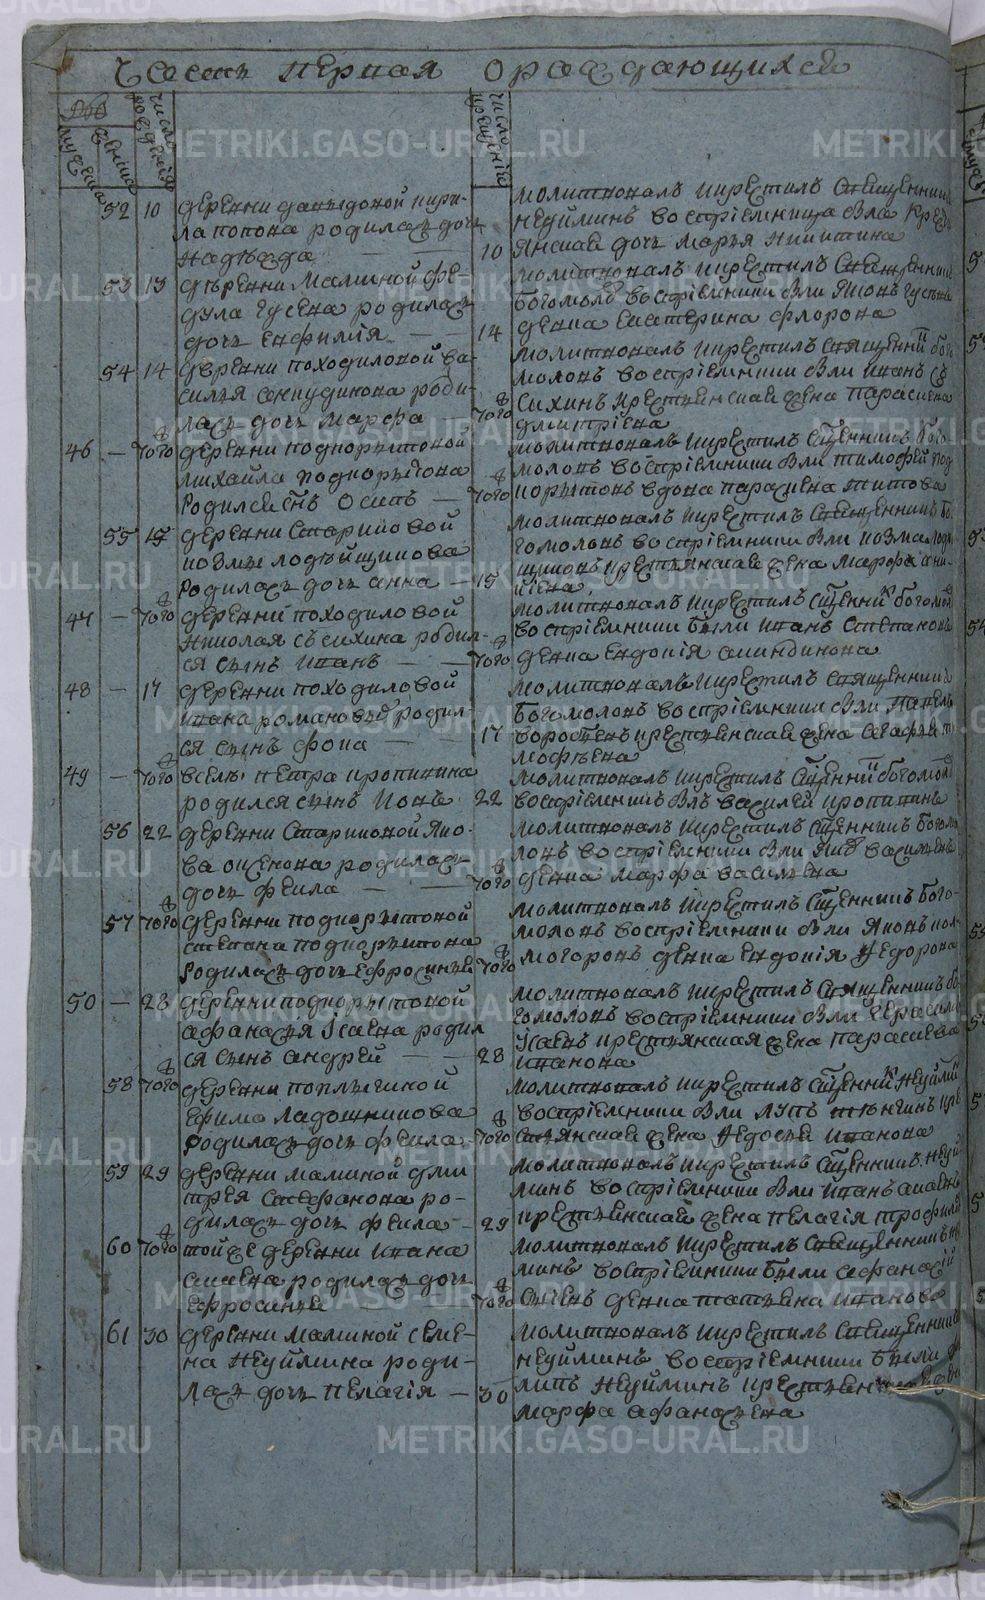 Часть первая о раждающихся
число рождения
число крещения
мужеска
женска
52 10 деревни давыдовой кири-
ла попова родилась дочь
надежда
10
молитвовалъ икрестилъ священникъ
неуйминъ восприемница была кресть
янская дочь марья никитина
53 13 деревни Малиной фе-
дула гусева родилась
дочь евфимия
14
молитвовалъ икрестилъ священникъ
богомоловъ восприемники были яковъ гусевъ
девка екатерина фролова
54 14 деревни походиловой ва-
силья роди-
лась дочь марфа
того
молитвовалъ икрестилъ священникъ бого
моловъ восприемники были иванъ съ
сыхинъ крестьянская жена парасковья
дмитриева
46 — того деревни подкорытовой
михайла подкорытова
родился сынъ осипъ
того
молитвовалъ икрестилъ священникъ бого
моловъ восприемники были тимофей под
корытовъ вдова параскева титова
55 15 деревни Стариковой
козмы ладейщикова
родилась дочь анна
15
молитвовалъ икрестилъ священникъ бо
гомоловъ восприемники были козма ладей
щиковъ крестьянская жена марфа
47 — того деревни походиловой
николая съсихина родил-
ся сынъ иванъ
того
молитвовалъ икрестилъ священникъ богомолов
восприемники были иванъ степановъ
девка евдокия
48 — 17 деревни походиловой
ивана романова родил-
ся сынъ фока
17
молитвовалъ икрестилъ священникъ
богомоловъ восприемники были павелъ
крестьянская жена агафья ти
мофеева
49 — того всели петра кропинина
родился сынъ Iовъ
22
молитвовалъ икрестилъ священникъ богомолов
восприемникъ былъ василей кропининъ
56 22 деревни Стариковой яко-
ва родилась
дочь фекла
того
молитвовалъ икрестилъ священникъ богомо
ловъ восприемники были васильевъ
девка марфа васильева
57 того деревни подкорытовой
степана подкорытова
родилась дочь ефросинья
того
молитвовалъ икрестилъ священникъ бого-
моловъ восприемники были яковъ кол-
могоровъ девка евдокия федорова
50 — 28 деревни подкорытовой
афанасья Iсаева родил
ся сынъ андрей
28
молитвовалъ икрестилъ священникъ бо
гомоловъ восприемники были герасимъ
Iсаевъ крестьянская жена парасковья
иванова
58 того деревни поплыгиной
ефима ладошникова
родилась дочь фекла
того
молитвовалъ икрестилъ священникъ неуймин
восприемники были лупъ кре
стьянская жена федосья иванова
59 29 деревни малиной дми
трея стефанова ро-
дилась дочь фекла
29
молитвовалъ икрестилъ священникъ неуй
минъ восприемники были иванъ исаевъ
крестьянская жена пелагия трофимова
60 того тойже деревни ивана
исаева родилась дочь
ефросинья
того
молитвовалъ икрестилъ священникъ неуй
минъ восприемники были афанасий
девка татьяна иванова
61 30 деревни малиной семе-
на неуймина роди-
лась дочь пелагия
30
молитвовалъ икрестилъ священникъ
неуйминъ восприемники были фи
липъ неуйминъ крестьянская
марфа афанасьева
METRIKI.GASO-URAL.RU